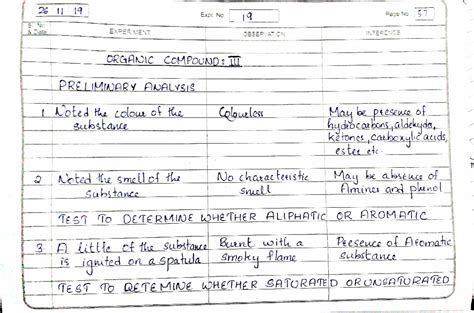 26 11 19 Expt. No. 19 Page No. 37
Sl. No. & Date EXPERIMENT OBSERVATION INFERENCE
ORGANIC COMPOUND: III
PRELIMINARY ANALYSIS
1 Noted the colour of the Colourless May be presence of
substance hydrocarbons, aldehyde,
ketones, carboxylic acids,
ester etc.
2 Noted the smell of the No characteristic May be absence of
substance smell Amines and phenol
TEST TO DETERMINE WHETHER ALIPHATIC OR AROMATIC
3. A little of the substance Burnt with a Presence of Aromatic
is ignited on a spatula smoky flame substance
TEST TO DETEMINE WHETHER SATURATED OR UNSATURATED